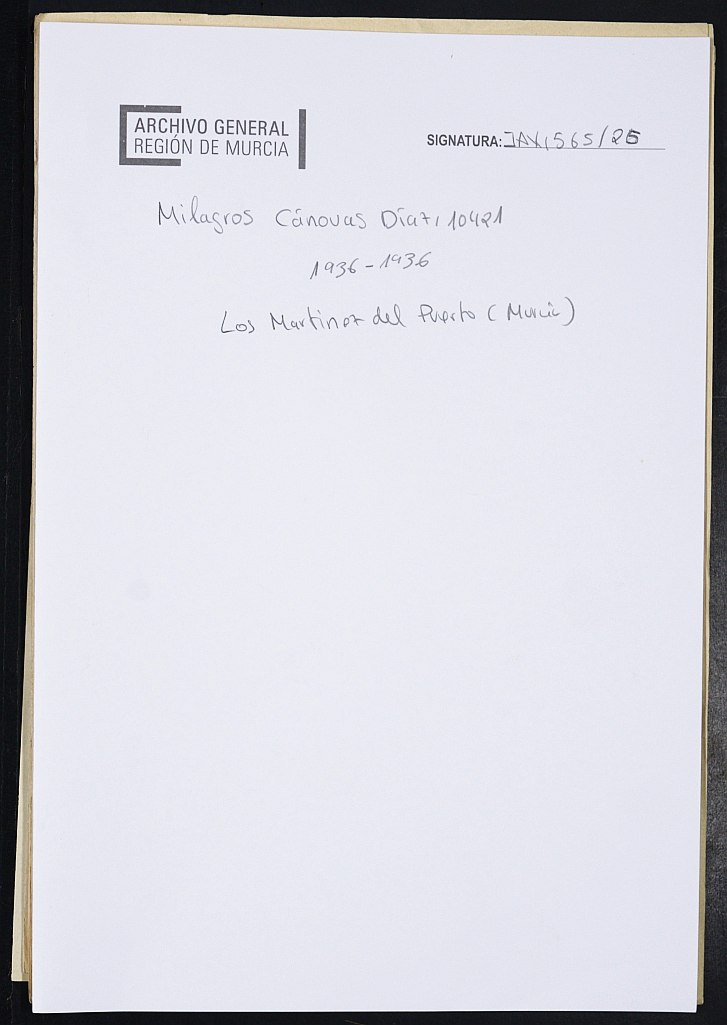 ARCHIVO GENERAL
REGIÓN DE MURCIA
SIGNATURA: JAX,565/25
Milagros Cánovas Díaz, 10421
1936-1936
Los Martinez del Puerto (Murcia)